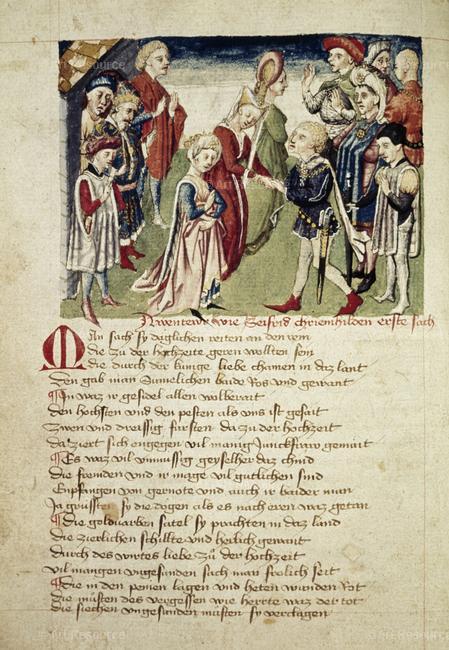 Awentewr wie Seifrid chriemhilden erste sach
Man sach sy däglichen reiten an den rein
die zu der hochzeite geren wollten sein
die durch der kunige liebe chamen in daz lant
Den gab man sumelichen baide Ros und gewant
In waz ir gesidel allen wolberait
den hochsten und den pesten als uns ist gesait
zwen und dreissig fursten da zu der hochzeit
da ziert sich engegen vil manig Junckfraw gemait
Es waz vil unmussig geyselher daz chind
die fremden und ir mage vil gutlichen sind
Enpfangen von gernote und auch ir baider man
Ja grussten sy die degen als es nach eren waz getan
die goldvarben satel sy prachten in daz land
die zierlichen schillte und herlich gewant
durch des wirtes liebe zu der hochzeit
vil mangen ungesunden sach man frolich seit
die in den peten lagen und heten wunden not
die musten des vergessen wie herrte waz der tot
die siechen ungesunden musten sy verclagen